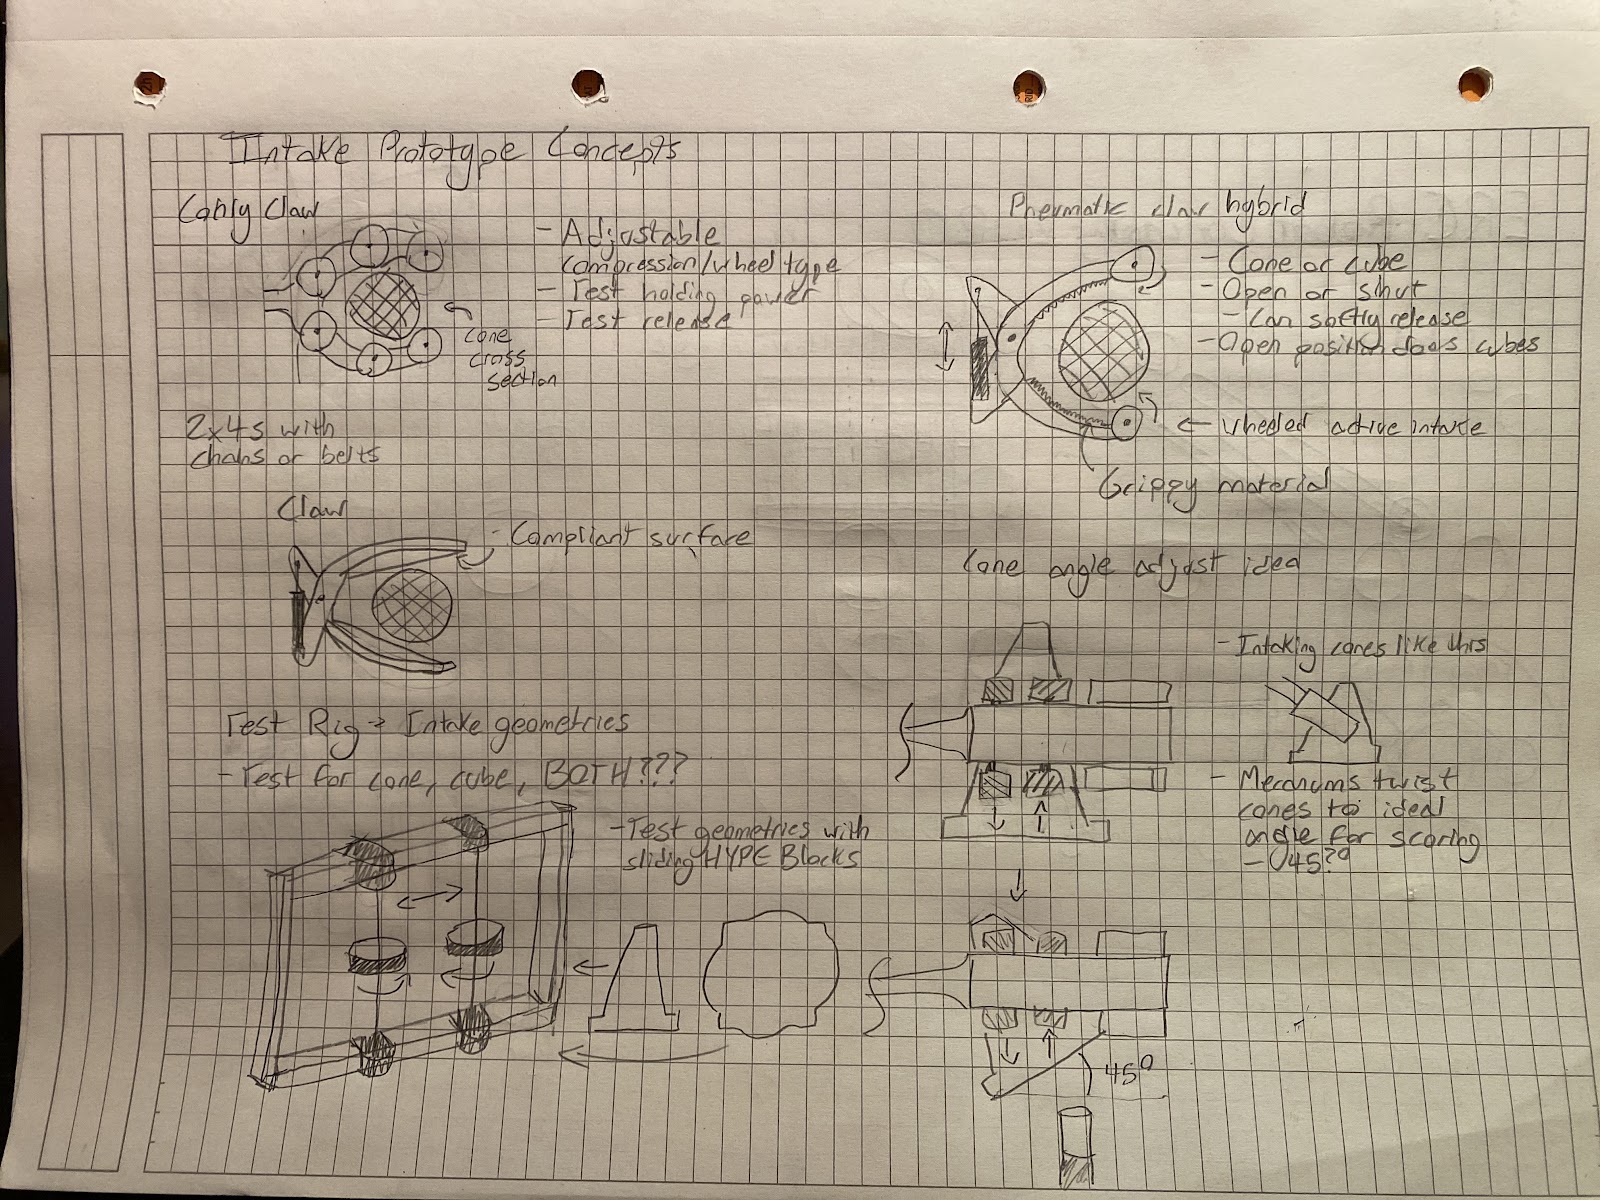 Intake Prototype Concepts
Conly Claw
- Adjustable
compression/wheel type
- Test holding power
- Test release
cone
cross
section
2x4s with
chains or belts
Claw
- Compliant surface
Test Rig → Intake geometries
- Test for cone, cube, BOTH???
- Test geometries with
sliding HYPE Blocks
Pneumatic claw hybrid
- Cone or cube
- Open or shut
- Can softly release
- Open position does cubes
← wheeled active intake
Grippy material
Cone angle adjust idea
- Intaking cones like this
- Mecanums twist
cones to ideal
angle for scoring
- 45?°
45°